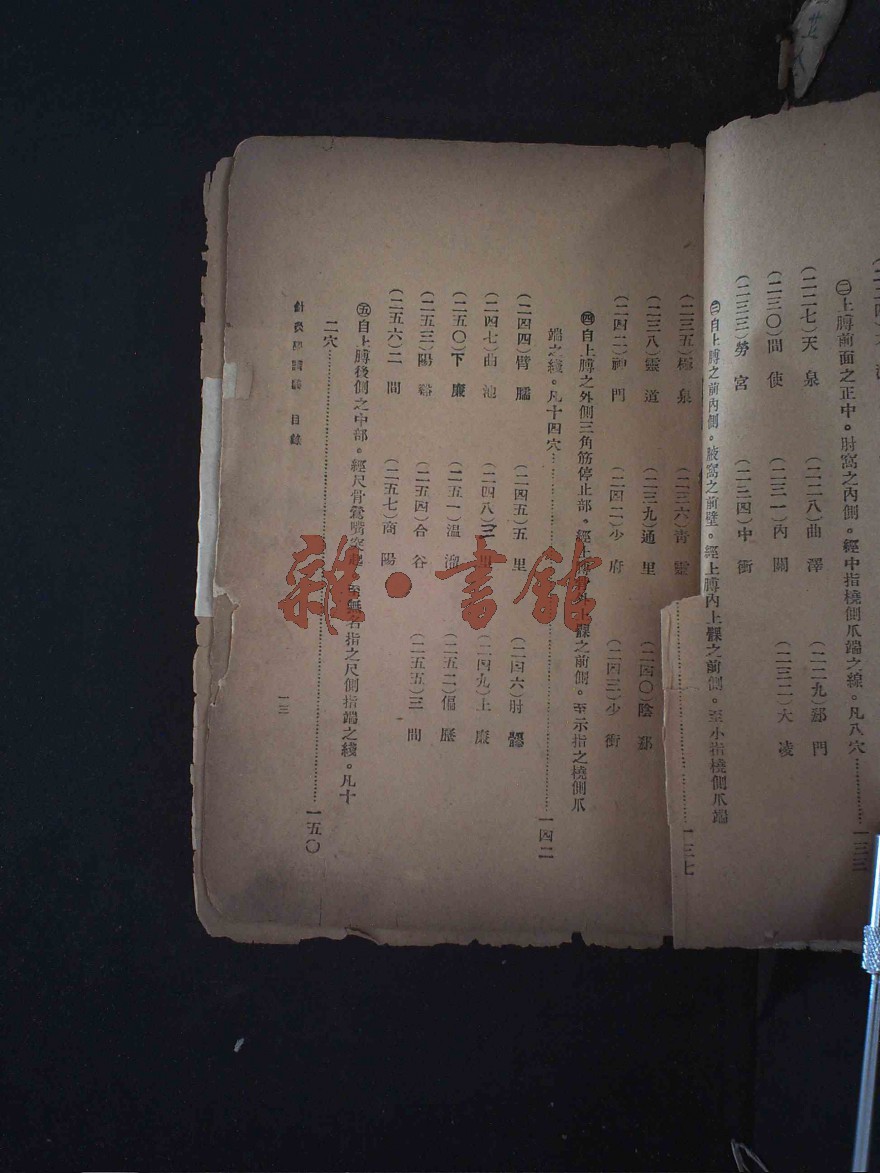 ㊁上膊前面之正中。肘窩之內側。經中指橈側爪端之線。凡八穴…………一三三
(二二七)天泉 (二二八)曲澤 (二二九)郄門
(二三〇)間使 (二三一)內關 (二三二)大凌
(二三三)勞宮 (二三四)中衝
㊂自上膊之前內側。腋窩之前壁。經上膊內上髁之前側。至小指橈側爪端
…………一三七
(二三五)極泉 (二三六)靑靈
(二三八)靈道 (二三九)通里 (二四〇)陰郄
(二四二)神門 (二四二)少府 (二四三)少衝
㊃自上膊之外側三角筋停止部。經上膊骨外上髁之前側。至示指之橈側爪
端之綫。凡十四穴…………一四二
(二四四)臂臑 (二四五)五里 (二四六)肘髎
(二四七)曲池 (二四八)三里 (二四九)上廉
(二五〇)下廉 (二五一)溫溜 (二五二)偏歷
(二五三)陽谿 (二五四)合谷 (二五五)三間
(二五六)二間 (二五七)商陽
㊄自上膊後側之中部。經尺骨鶯嘴突起 至無名指之尺側指端之綫。凡十
二穴…………一五〇
目錄
一三
雜·書館